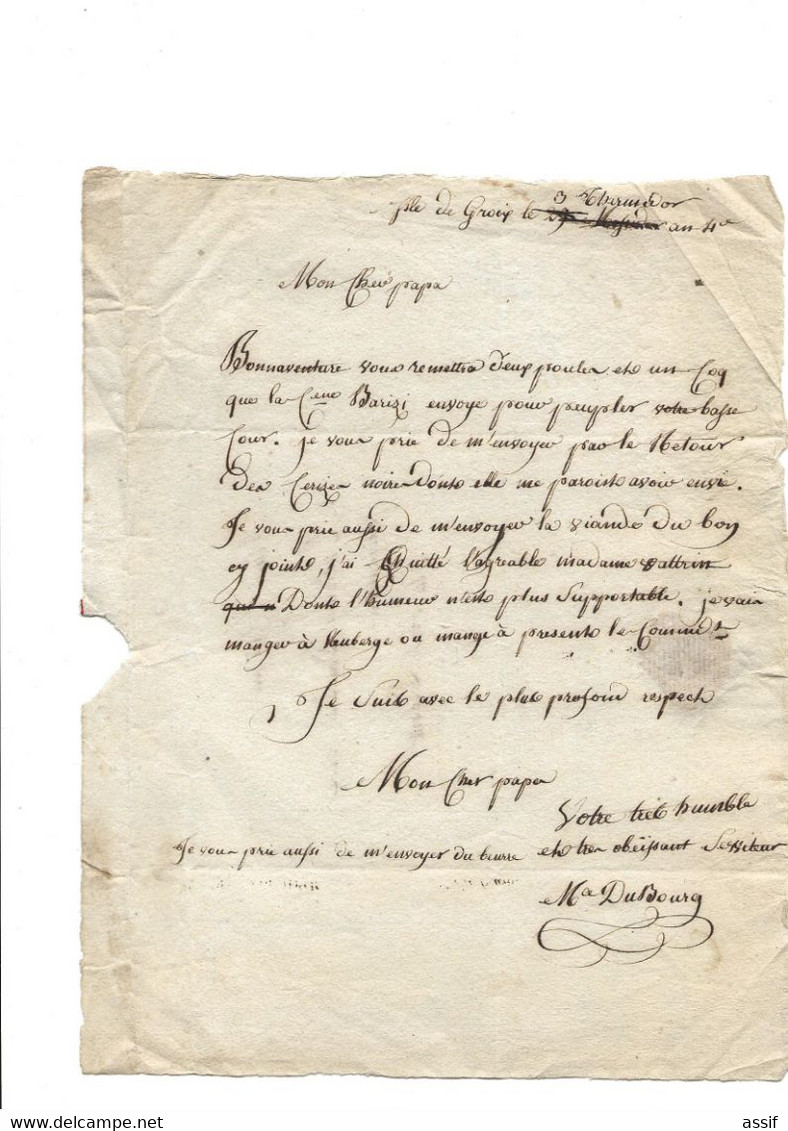 isle de Groix le 3 Thermidor an 4e
Mon Cher papa
Bonnaventure vous remettra deux poules et un Coq
que la Cene Barizi envoye pour peupler votre basse
Cour. je vous prie de m'envoyer par le Retour
Des Cerizes noires Dont elle me paroist avoir envie.
Je vous prie aussi de m'envoyer la viande du bon
cy joint, j'ai Quitté l'agreable madame vattrin
Dont l'humeur n'est plus Supportable. je vais
manger à l'auberge ou mange à present le Commdt
Je Suis avec le plus profond respect
Mon Cher papa
Votre très humble
et tres obëissant Serviteur
Ma DuBourg
Je vous prie aussi de m'envoyer du beurre
assif